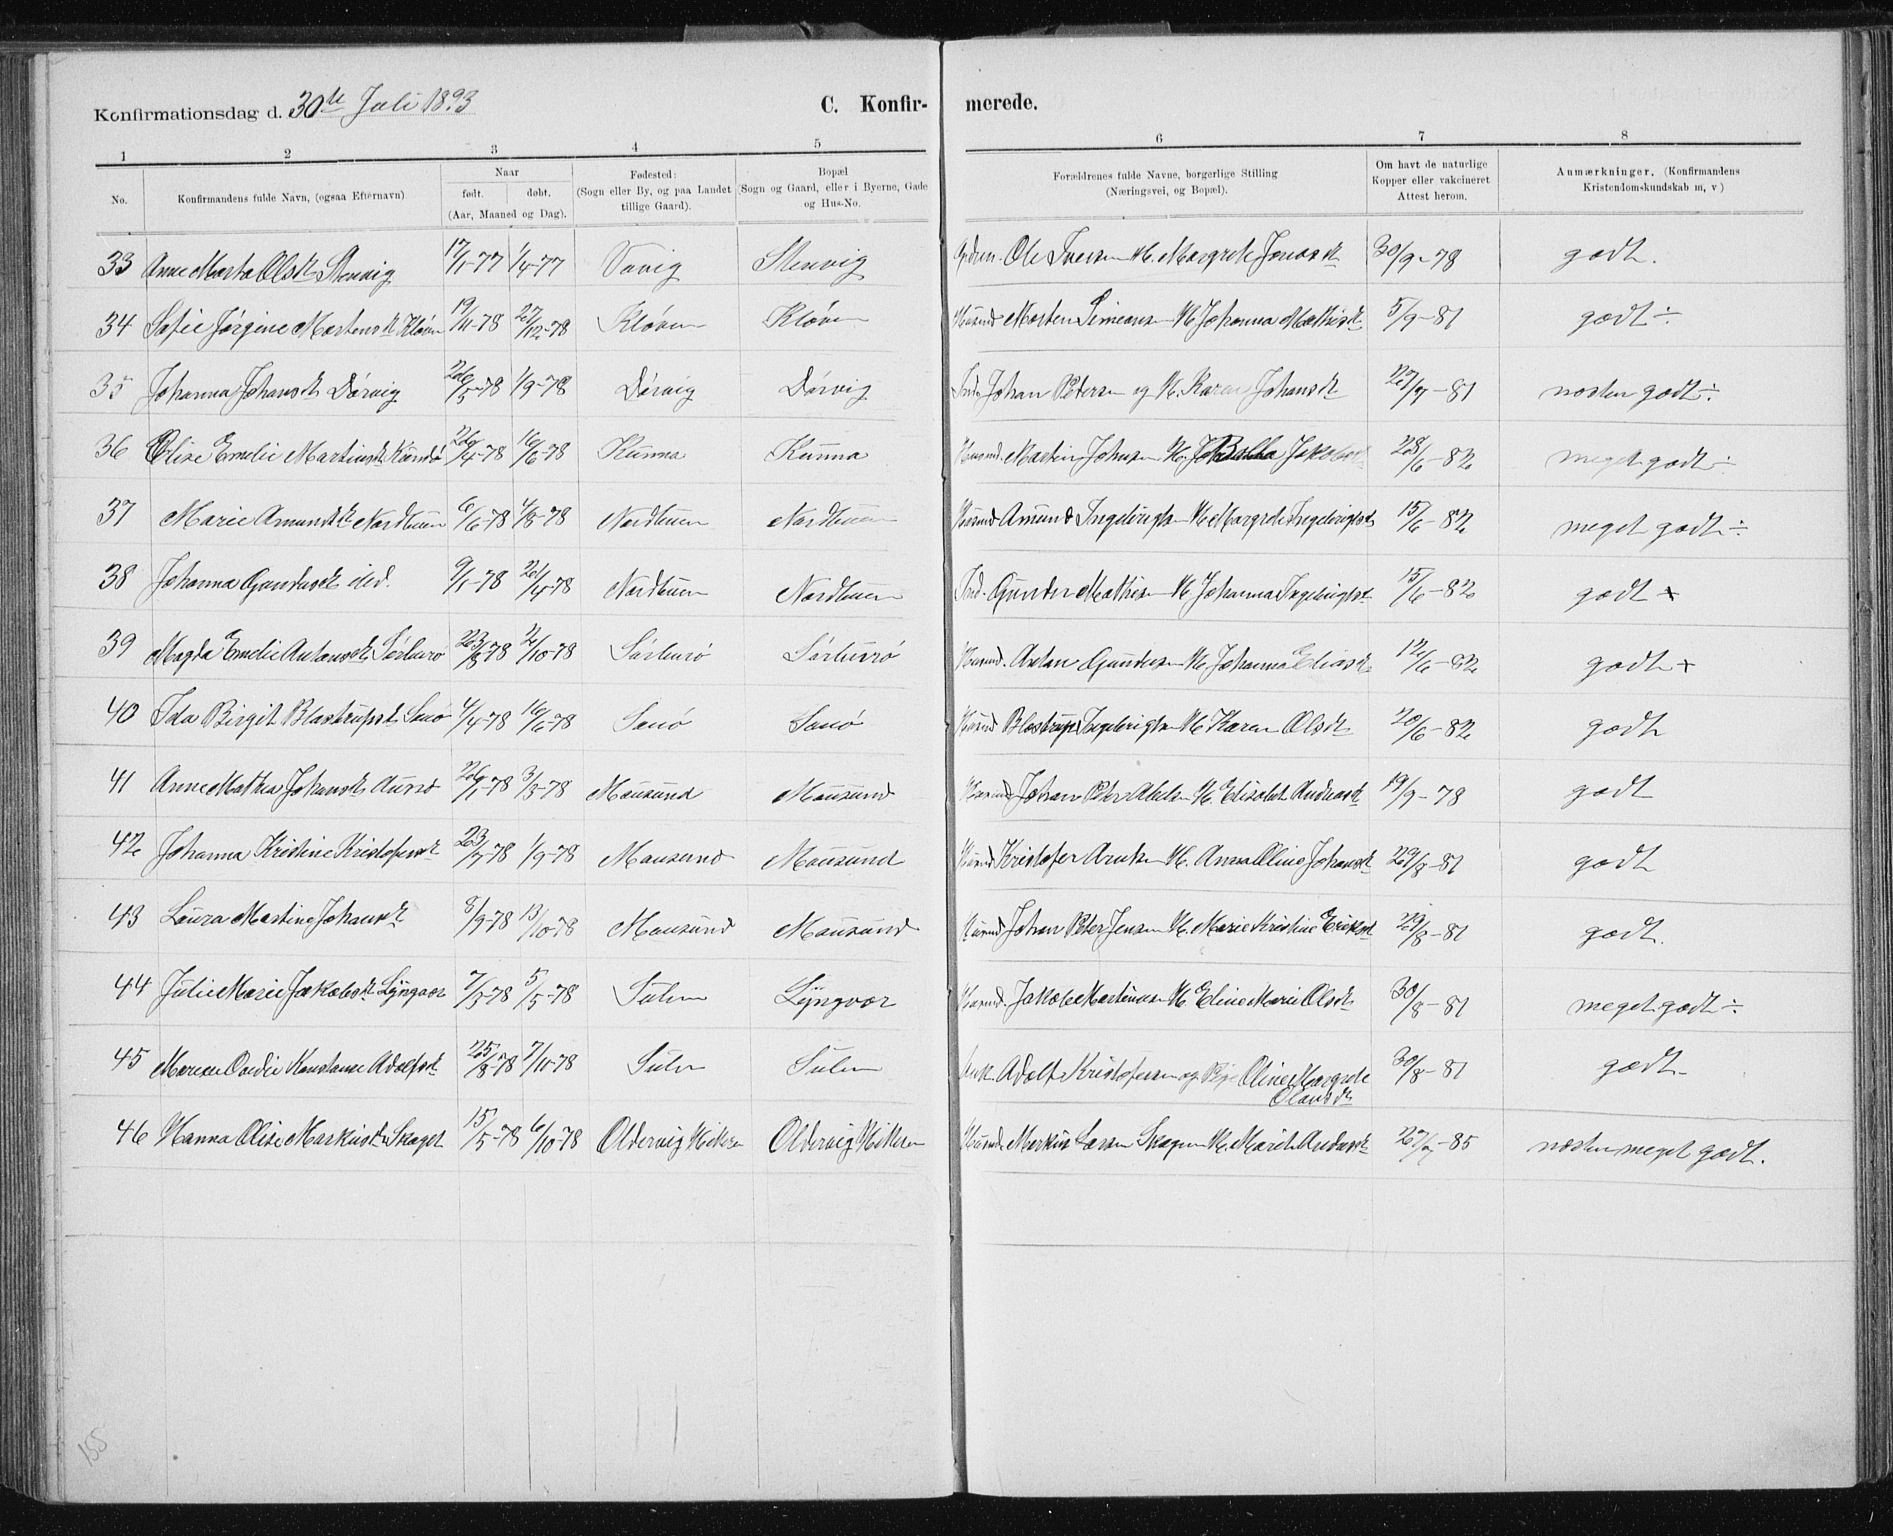 Konfirmationsdag d. 30te Juli 1893 C. Konfir- merede.
1 2 3 4 5 6 7 8
No. Konfirmandens fulde Navn, (ogsaa Efternavn) Naar født. døbt. (Aar, Maaned og Dag). Fødested: (Sogn eller By, og paa Landet tillige Gaard). Bopæl (Sogn og Gaard, eller i Byerne, Gade og Hus-No. Forældrenes fulde Navne, borgerlige Stilling (Næringsvei, og Bopæl). Om havt de naturlige Kopper eller vakcineret Attest herom. Anmærkninger, (Konfirmandens Kristendomskundskab m, v)
33 Anne Marta Olsdt Stenvig 17/1-77 1/4-77 Vavig Stenvig Ole Iversen H. Margrete Jonasdt 30/9-78 godt.
34 Sofie Jørgine Mortensdt Kløven 19/11-78 27/12-78 Kløven Kløven Husmd Morten Simeonsen H. Johanna Mathisdt 5/9-81 godt ÷
35 Johanna Johansdt Dørvig 26/5-78 1/9-78 Dørvig Dørvig Johan Petersen og H. Karen Johansdt 27/7-81 næsten godt ÷
36 Elise Emelie Martinsdt Kunna 26/4-78 16/6-78 Kunna Kunna Husmd Martin Johnsen H. Jakobsdt 28/6-82 meget godt ÷
37 Marie Amundsdt Nordbuen 6/6-78 4/8-78 Nordbuen Nordbuen Husmd Amund Ingebrigtsen H. Margrete Ingebrigtsdt 15/6-82 meget godt ÷
38 Johanna Gundersdt ibd. 9/1-78 21/4-78 Nordbuen Nordbuen Gunder Mathisen H. Johanna Ingebrigtsdt 15/6-82 godt ×
39 Magda Emelie Antonsdt Sørburø 23/8-78 2/10-78 Sørburø Sørburø Husmd. Anton Gundersen H. Johanna Eliasdt 12/6-82 godt +
40 Ida Birgit Blastrupsdt Sauø 4/4-78 16/6-78 Sauø Sauø Husmd Blastrup Ingebrigtsen H. Karen Olsdt 20/6-82 godt
41 Anne Mathea Johansdt Aursø 26/1-78 3/3-78 Mausund Mausund Husmd Johan Peter Abelsen H. Elisabet Andreasdt 19/9-78 godt
42 Johanna Kristine Kristofersdt 23/7-78 1/9-78 Mausund Mausund Husmd Kristofer Arntsen H. Anna Oline Johansdt 29/8-81 godt
43 Laura Martine Johansdt 8/9-78 13/10-78 Mausund Mausund Husmd Johan Peter Jensen H. Marie Kristine Eriksdt 29/8-81 godt.
44 Julie Marie Jakobsdt Lyngvær 7/3-78 5/5-78 Sulen Lyngvær Husmd. Jakob Martinusen H. Eline Marie Olsdt 30/8-81 meget godt ÷
45 Konstanse Adolfsdt 25/8-78 7/10-78 Sulen Sulen Adolf Kristofersen og Pige Oline Margrete
Olausdt 30/8-81 godt
46 Hanna Olise Markusdt Skaget 15/5-78 6/10-78 Oldervig Hitteren Oldervig Hitteren Husmd. Markus Larsen Skagen H. Marit Andersdt 27/7-85 næsten meget godt.
155